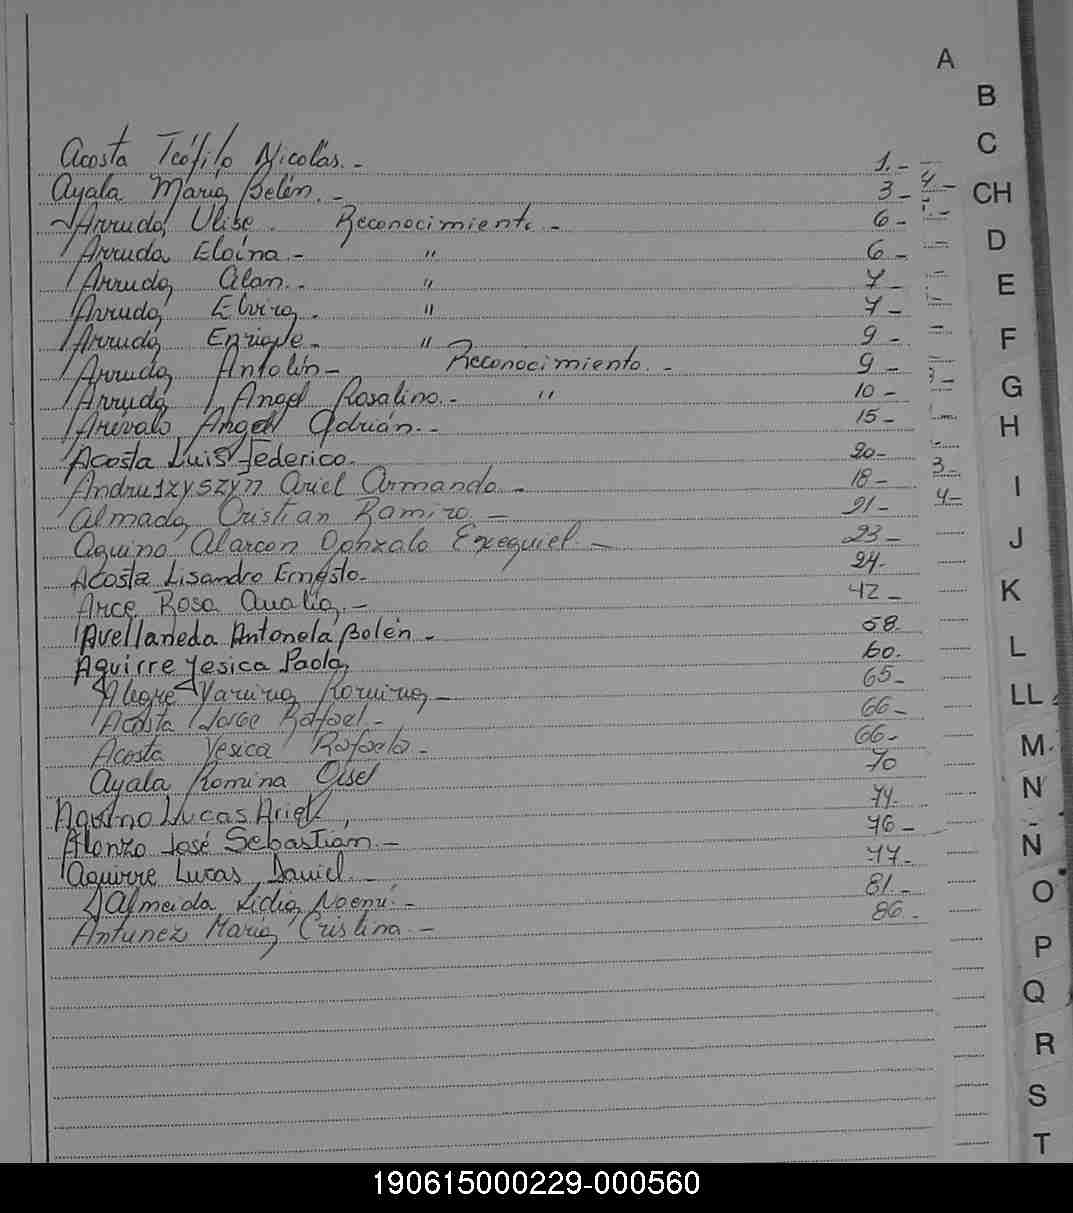 A
B
C
CH
D
E
F
G
H
I
J
K
L
LL
M
N
Ñ
O
P
Q
R
S
T
Acosta Teófilo Nicolás.- 1.-
Ayala María Belén.- 3-
Arruda, Ulise. Reconocimiento.- 6-
Arruda, Eloína.- " 6-
Arruda, Alan.- " 7-
Arruda, Elvira. " 7-
Arruda, Enrique.- " 9-
Arruda, Antolín- Reconocimiento.- 9-
Arruda, Angel Rosalino.- " 10-
Arévalo Angel Adrián.- 15-
Acosta Luis Federico. 20-
Andruszyszyn Ariel Armando.- 18-
Almada, Cristian Ramiro.- 21-
Aquino, Alarcon Gonzalo Exequiel.- 23-
Acosta Lisandro Ernesto- 24-
Arce, Rosa Analia,- 42-
Avellaneda Antonela Belén- 58.
Aguirre Yesica Paola, 60.
Alegre Yanina Romina- 65-
Acosta Jorge Raffael- 66-
Acosta Yesica Rafaela- 66-
Ayala Romina Gisel 70
Aquino Lucas Ariel 74-
Alonzo José Sebastián.- 76-
Aguirre Lucas Daniel.- 77-
Almeida Lidia Noemí.- 81-
Antunez, María Cristina.- 86-
190615000229-000560